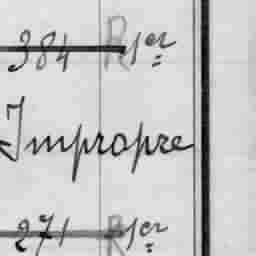 384 R 1er
Impropre
271 R 1er